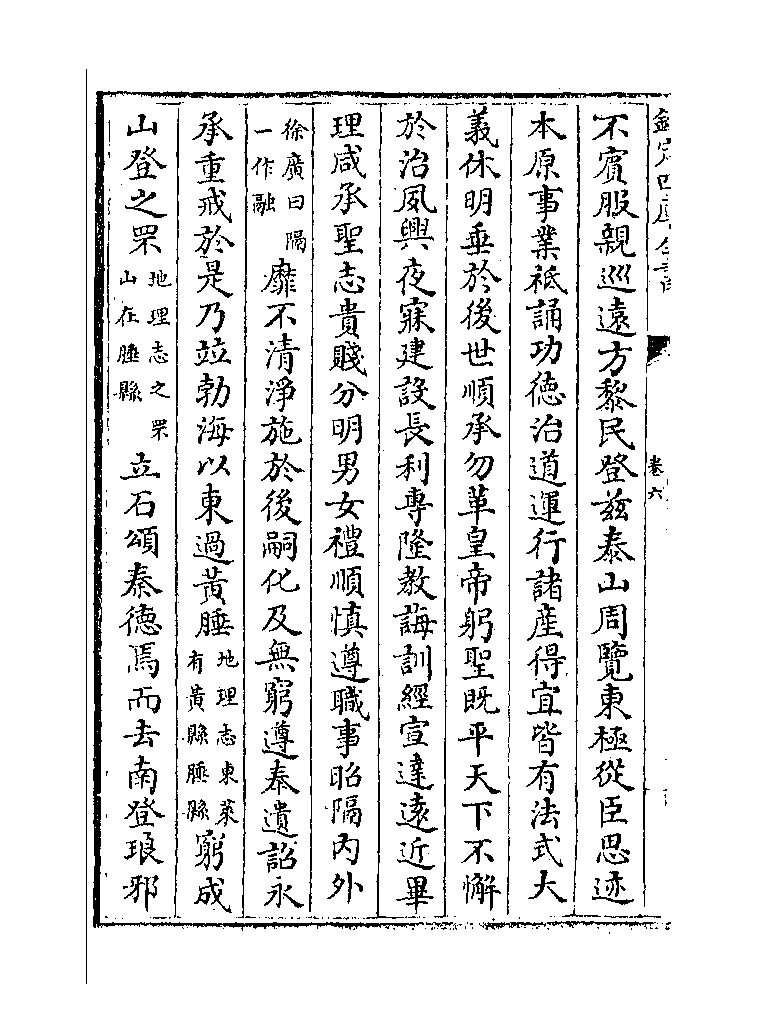 欽定四庫全書
卷六
不賔服親巡遠方黎民登兹泰山周覽東極從臣思迹
本原事業祗誦功徳治道運行諸産得宜皆有法式大
義休明垂於後世順承勿革皇帝躬聖既平天下不懈
於治夙興夜寐建設長利専隆教誨訓經宣達遠近畢
理咸承聖志貴賤分明男女禮順慎遵職事昭隔内外
徐廣曰隔
一作融
靡不清淨施於後嗣化及無窮遵奉遺詔永
承重戒於是乃竝勃海以東過黃腄
地理志東萊
有黃縣腄縣
窮成
山登之罘
地理志之罘
山在腄縣
立石頌秦徳焉而去南登琅邪